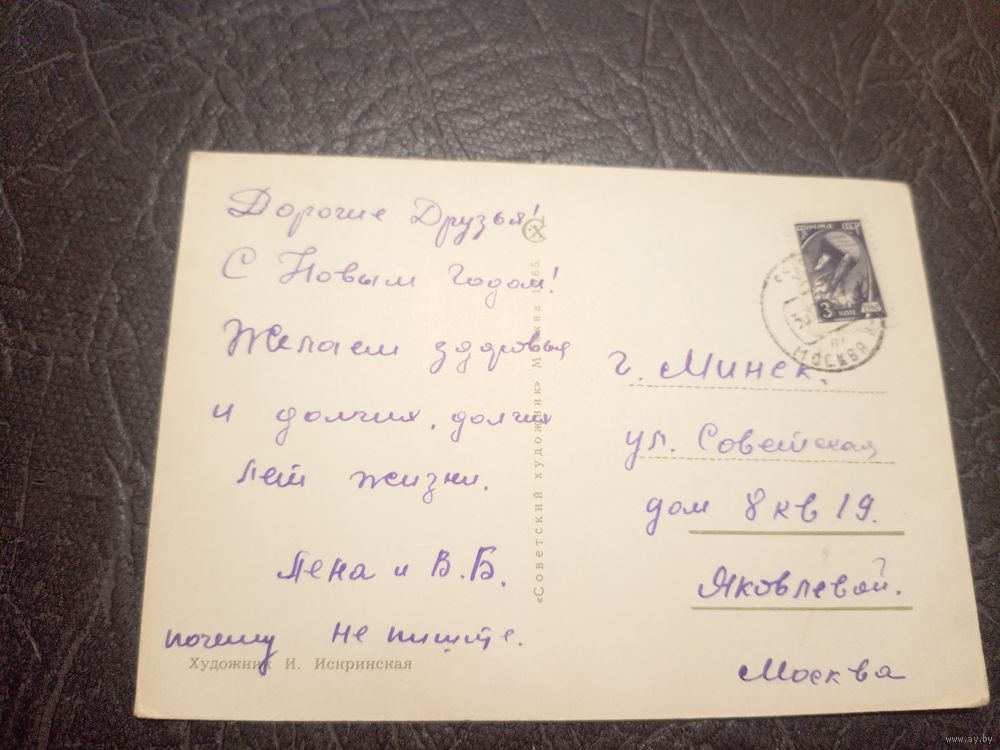 Дорогие Друзья!
С Новым Годом!
Желаем здоровья
и долгих, долгих
лет жизни.
Лена и В.Б.
почему не пишите.
Художник И. Искринская
«Советский художник» Москва 1965.
ПОЧТА СССР
3 КОП
МОСКВА
г. Минск.
ул. Советская
дом 8 кв 19.
Яковлевой.
Москва
www.ay.by